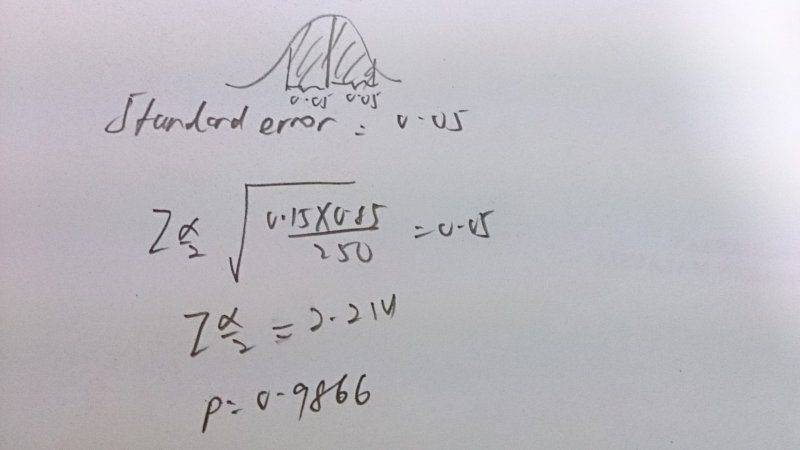 0.05 0.05
Standard error = 0.05
Z α/2 √(0.15×0.85/250) = 0.05
Z α/2 = 2.214
p = 0.9866